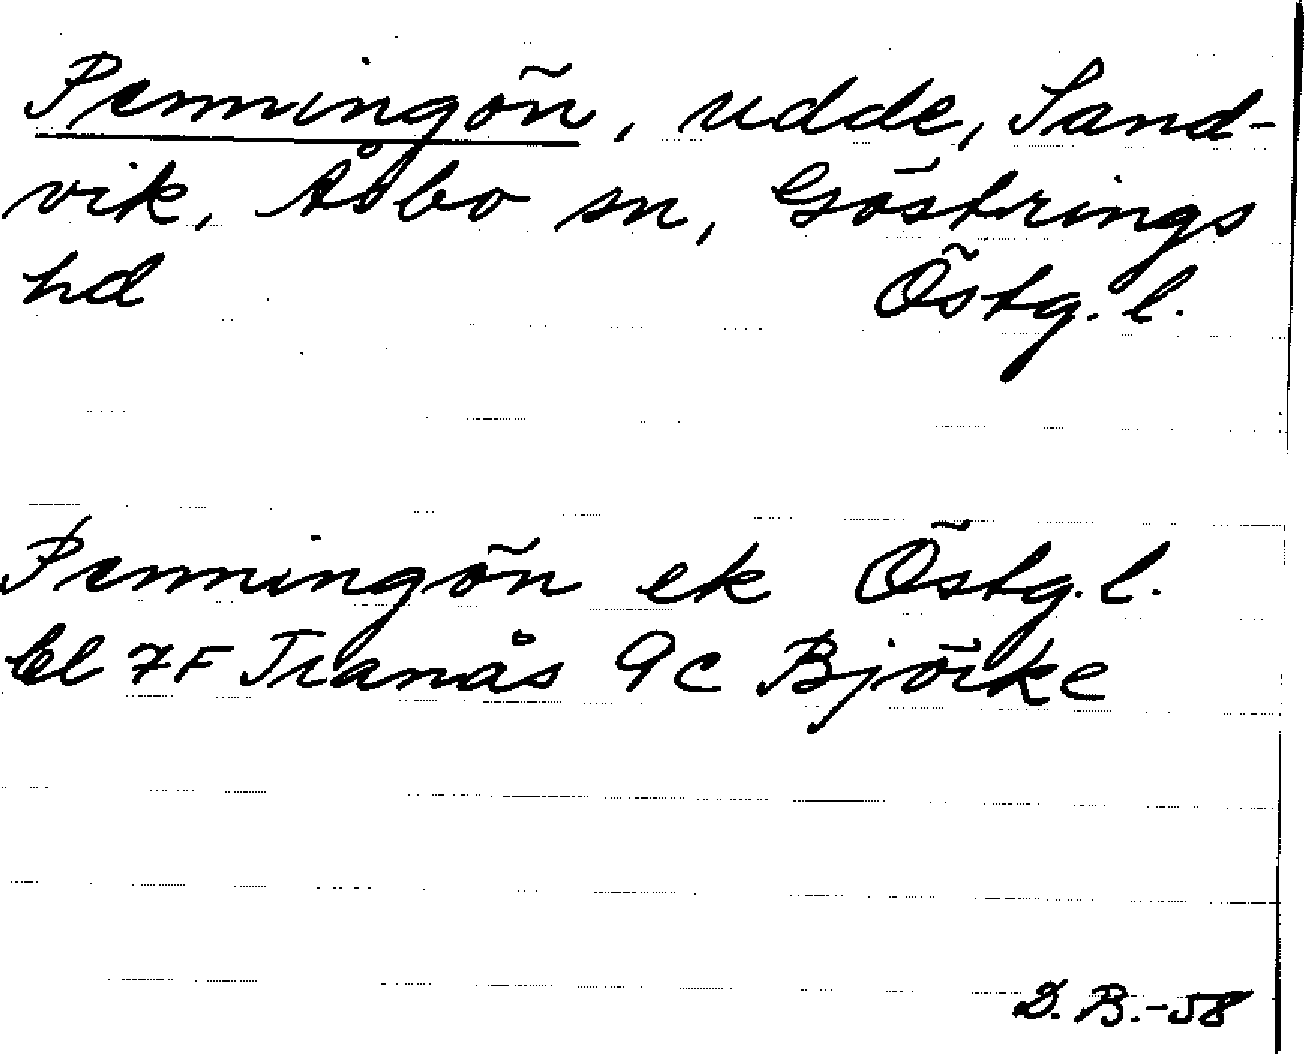 Penningön, udde, Sand-
vik, Åsbo sn, Göstrings
hd Östg. l.
Penningön ek Östg. l.
bl 7F Tranås 9c Björke
D. B. -58